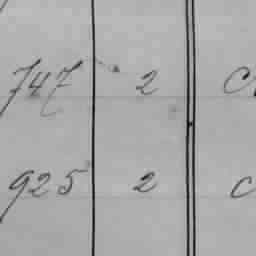 747 2 C
925 2 C